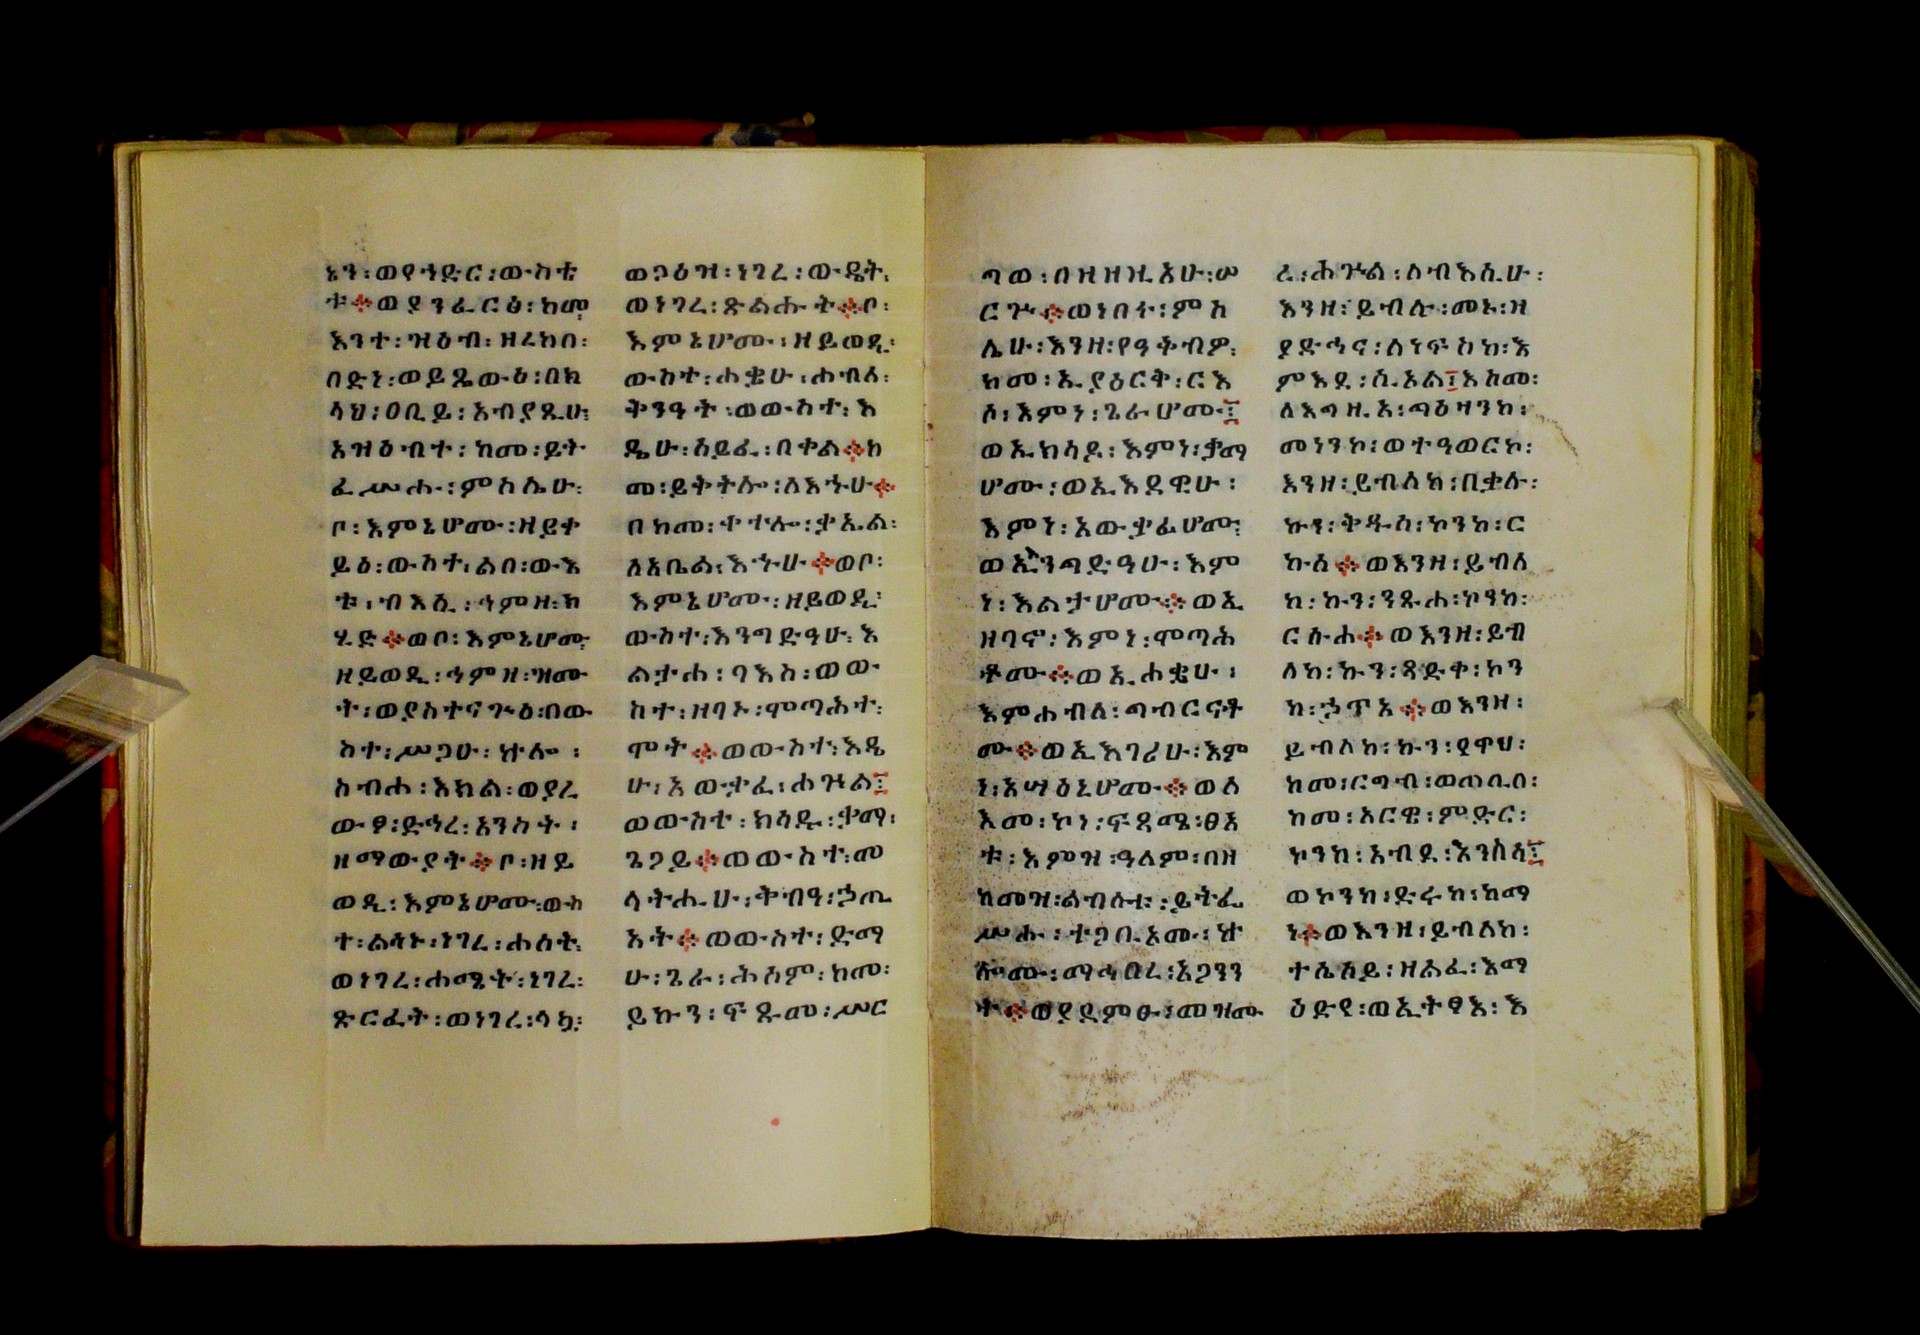 ኔን፡ወየኀድር፡ውስቴ
ቱ፨ወያንፈርዕፅ፡ከመ
እንተ፡ዝዕብ፡ዘረከበ፡
በድነ፡ወይጼውዕ፡በክ
ላህ፡ዐቢይ፡አብያጺሁ፡
አዝዕብተ፡ከመ፡ይት
ፈሥሑ፡ምስሌሁ፡
ቦ፡እምኔሆሙ፡ዘይተ
ይዕ፡ውስተ፡ልበ፡ውእ
ቱ፡ብእሲ፡ኅምዘ፡ክ
ሂድ፨ወቦ፡እምኔሆሙ፡
ዘይወዲ፡ኅምዘ፡ዝሙ
ት፡ወያስተናሥዕ፡በው
ስተ፡ሥጋሁ፡ኵሎ፡
ስብሐ፡እክል፡ወያረ
ውፆ፡ድኅረ፡አንስት፡
ዘማውያት፨ቦ፡ዘይ
ወዲ፡እምኔሆሙ፡ውስ
ተ፡ልሳኑ፡ነገረ፡ሐሰት፡
ወነገረ፡ሐሜት፡ነገረ፡
ጽርፈት፡ወነገረ፡ሳቧ፡
ወጋዕዝ፡ነገረ፡ውዴት፡
ወነገረ፡ጽልሑት፨ቦ፡
እምኔሆሙ፡ዘይወዲ፡
ውስተ፡ሐቌሁ፡ሐብለ፡
ቅንዓት፡ወውስተ፡እ
ዴሁ፡ሰይፈ፡በቀል፨ከ
መ፡ይቅትሎ፡ለእኁሁ፨
በከመ፡ቀተሎ፡ቃኤል፡
ለአቤል፡እኁሁ፨ወቦ፡
እምኔሆሙ፡ዘይወዲ፡
ውስተ፡እንግድዓሁ፡እ
ልታሐ፡ባእስ፡ወው
ስተ፡ዘባኑ፡ሞጣሕተ፡
ሞት፨ወውስተ፡እዴ
ሁ፡አውታፈ፡ሐኘል፤
ወውስተ፡ክሳዱ፡ቃማ፡
ጌጋይ፨ወውስተ፡መ
ሳትሒሁ፡ቅብዓ፡ኃጢ
አት፨ወውስተ፡ድማ
ሁ፡ጌራ፡ሕሰም፡ከመ፡
ይኩን፡ፍጹመ፡ሥር
ጣወ፡በዘዘዚአሁ፡ሠ
ርጕ፨ወነበተ፡ምስ
ሌሁ፡እንዘ፡የዓቅብዎ፡
ከመ፡ኢያዕርቅ፡ርእ
ሶ፡እምነ፡ጌራሆሙ፤
ወኢክሳዶ፡እምነ፡ቃማ
ሆሙ፡ወኢእደዊሁ፡
እምነ፡አውታፊሆሙ፡
ወኢእንግድዓሁ፡እም
ነ፡እልታሆሙ፨ወኢ
ዘባኖ፡እምነ፡ሞጣሕ
ቶሙ፨ወኢሐቌሁ፡
እምሐብለ፡ጣብርናቶ
ሙ፨ወኢእገሪሁ፡እም
ነ፡አሣዕኒሆሙ፨ወለ
እመ፡ኮነ፡ፍጻሜ፡ፀአ
ቱ፡እምዝ፡ዓለም፡በዘ
ከመዝ፡ልብሱቱ፡ይትፌ
ሥሑ፡ተጋቢኦሙ፡ኵ
ሎሙ፡ማኅበረ፡አጋንን
ት፨ወያደምፁ፡መዝሙ
ረ፡ሕኘል፡ለብእሲሁ፡
እንዘ፡ይብሉ፡መኑ፡ዘ
ያድኅና፡ለነፍስከ፡እ
ምእደ፡ሲኦል፤እስመ፡
ለእግዚአ፡ጣዕዛንከ፡
መነንኮ፡ወተዓወርኮ፡
እንዘ፡ይብለከ፡በቃሉ፡
ኩን፡ቅዱስ፡ኮንከ፡ር
ኩሰ፨ወእንዘ፡ይብለ
ከ፡ኩን፡ንጹሐ፡ኮንከ፡
ርሱሐ፨ወእንዘ፡ይብ
ለከ፡ኩን፡ጻድቀ፡ኮን
ከ፡ኃጥአ፨ወእንዘ፡
ይብለከ፡ኩን፡የዋህ፡
ከመ፡ርግብ፡ወጠቢበ፡
ከመ፡አርዌ፡ምድር፡
ኮንከ፡አብደ፡እንስሳ፤
ወኮንከ፡ድሩከ፡ከማ
ነ፨ወእንዘ፡ይብለከ፡
ተሴሰይ፡ዘሕፈ፡እማ
ዕድየ፡ወኢትፃእ፡እ